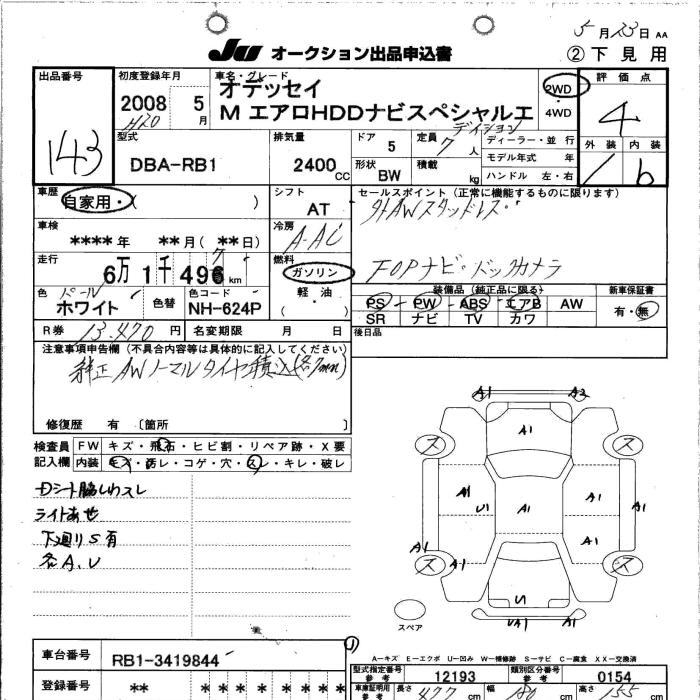 5月23日 AA
JU オークション出品申込書
②下見用
出品番号
143
初度登録年月
2008 5月
H20
車名・グレード
オデッセイ
M エアロHDDナビスペシャルエ
ディション
2WD
4WD
評価点
4
外装 内装
1 b
型式
DBA-RB1
排気量
2400cc
ドア 5
形状 BW
定員 7人
積載 kg
ディーラー・並行
モデル年式 年
ハンドル 左・右
車歴
自家用・( )
シフト
AT
セールスポイント (正常に機能するものに限ります)
社外AWスタッドレス
FOPナビ・バックカメラ
車検
****年 **月(**日)
冷房
A-AC
走行
6万1千496km
7
燃料
ガソリン
軽・油
( )
色
パール
ホワイト
色替
色コード
NH-624P
装備品 (純正品に限る)
PS PW ABS エアB AW
SR ナビ TV カワ
新車保証書
有・無
R券 13,470円
名変期限 月 日
後日品
注意事項申告欄 (不具合内容等は具体的に記入してください)
純正AWノーマルタイヤ積込(各7mm)
修復歴 有 〔箇所 〕
検査員 FW キズ・飛石・ヒビ割・リペア跡・X要
記入欄 内装 キズ・汚レ・コゲ・穴・スレ・キレ・破レ
Dシート脇しわスレ
ライトあせ
下廻りS有
各A.U
A1 A2
A1
ス ス
A1 U1 A1 A1 A1
A1
A1 A1
ス ス
U
UA1 A1
スペア
A-キズ E-エクボ U-凹み W-補修跡 S-サビ C-腐食 XX-交換済
車台番号
RB1-3419844
型式指定番号
参考
12193
類別区分番号
参考
0154
登録番号
** *
車庫証明用
参考
長さ 477cm
幅 cm
高さ 155cm